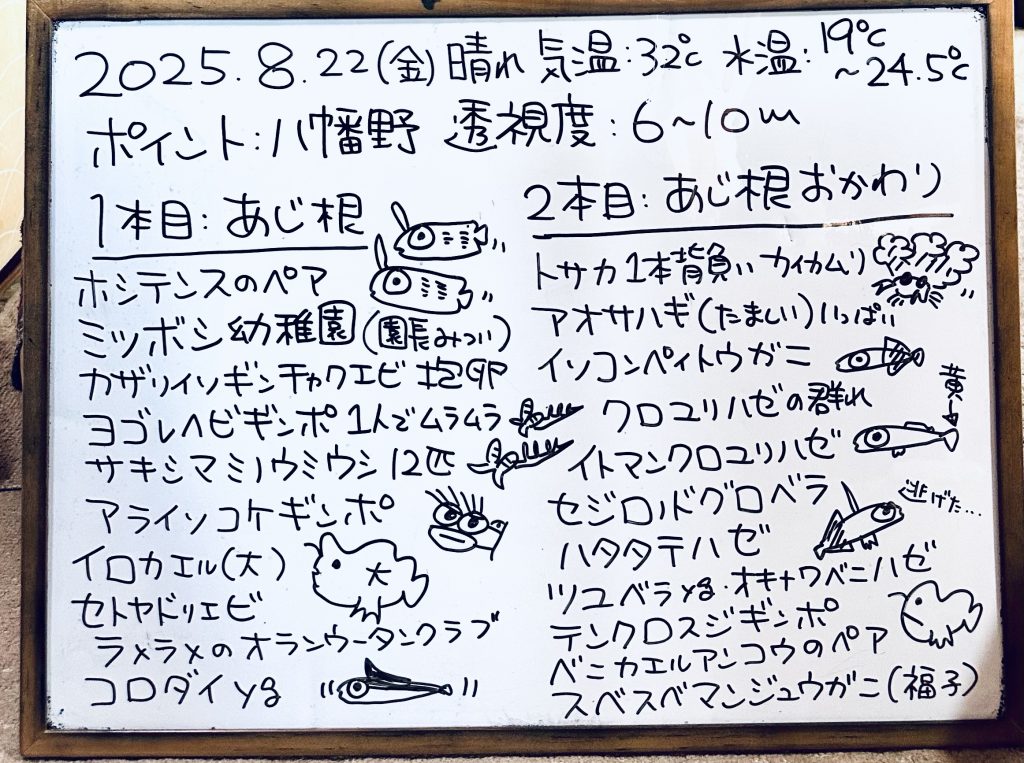 2025.8.22(金)晴れ 気温:32℃ 水温:19℃
~24.5℃
ポイント:八幡野 透視度:6~10m
1本目:あじ根
ホシテンスのペア
ミツボシ幼稚園(園長みつい)
カザリイソギンチャクエビ 抱卵
ヨゴレヘビギンポ 1人でムラムラ
サキシマミノウミウシ 12匹
アライソコケギンポ
イロカエル(大)
大
セトヤドリエビ
ラメラメのオランウータンクラブ
コロダイyg
2本目:あじ根おかわり
トサカ1本背負い カイカムリ
アオサハギ(たましい)いっぱい
イソコンペイトウガニ
黄
クロユリハゼの群れ
イトマンクロユリハゼ
セジロノドグロベラ
逃げた…
ハタタテハゼ
ツユベラyg・オキナワベニハゼ
テンクロスジギンポ
ベニカエルアンコウのペア
スベスベマンジュウガニ(福子)